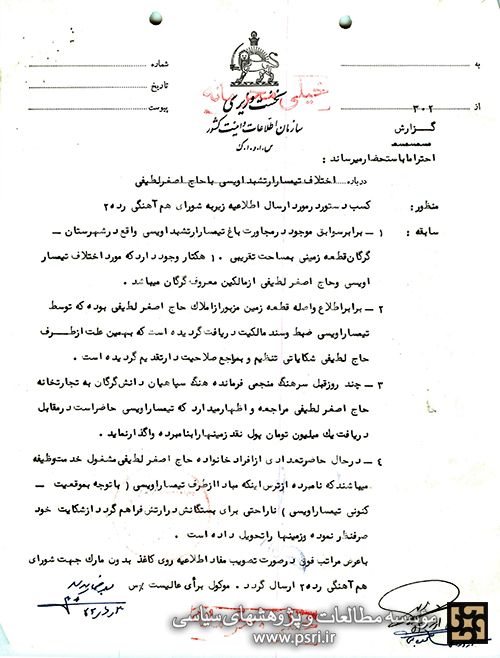 به
شماره
خیلی محرمانه
تاریخ
نخست وزیری
از ۳۰۲
پیوست
سازمان اطلاعات و امنیت کشور
گزارش
س.ا.و.ا.ک
احتراما باستحضار میرساند :
درباره اختلاف تیمسار ارتشبد اویسی با حاج اصغر لطیفی
منظور : کسب دستور در مورد ارسال اطلاعیه زیر به شورای هم آهنگی رده ۲
سابقه : ۱ - برابر سوابق موجود در مجاورت باغ تیمسار ارتشبد اویسی واقع در شهرستان -
گرگان قطعه زمینی بمساحت تقریبی ۱۰ هکتار وجود دارد که مورد اختلاف تیمسار
اویسی و حاج اصغر لطیفی از مالکین معروف گرگان میباشد .
۲ - برابر اطلاع واصله قطعه زمین مزبور از املاک حاج اصغر لطیفی بوده که توسط
تیمسار اویسی ضبط و سند مالکیت دریافت گردیده است که بهمین علت از طرف
حاج لطیفی شکایاتی تنظیم و بمراجع صلاحیت دار تقدیم گردیده است .
۳ - چند روز قبل سرهنگ منجمی فرمانده هنگ سپاهیان دانش گرگان به تجارتخانه
حاج اصغر لطیفی مراجعه و اظهار میدارد که تیمسار اویسی حاضر است در مقابل
دریافت یک میلیون تومان پول نقد زمینها را بنامبرده واگذار نماید .
۴ - در حال حاضر تعدادی از افراد خانواده حاج اصغر لطیفی مشغول خدمت وظیفه
میباشند که نامبرده از ترس اینکه مبادا از طرف تیمسار اویسی ( با توجه بموقعیت -
کنونی تیمسار اویسی ) ناراحتی برای بستگانش در ارتش فراهم گردد از شکایت خود
صرفنظر نموده و زمینها را تحویل داده است .
با عرض مراتب فوق در صورت تصویب مفاد اطلاعیه روی کاغذ بدون مارک جهت شورای
هم آهنگی رده ۲ ارسال گردد . موکول برأی عالیست
موسسه مطالعات و پژوهشهای سیاسی
www.psri.ir